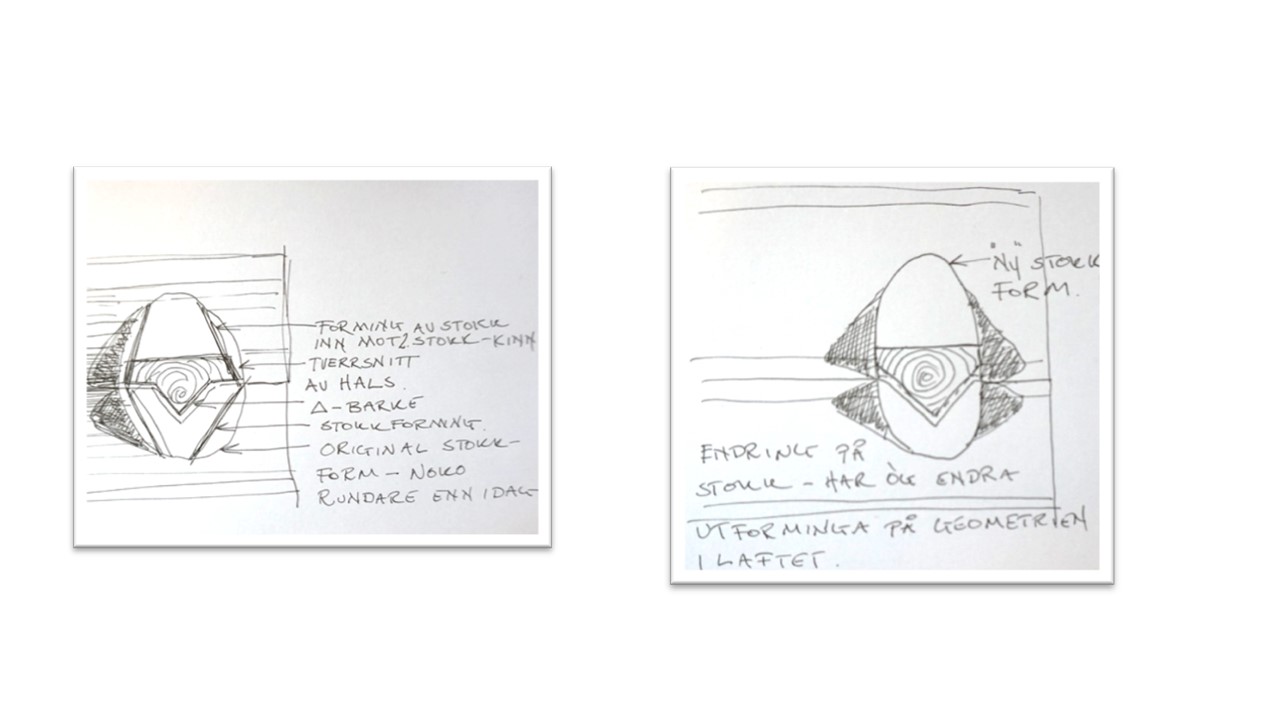 FORMING AV STOKK
INN MOT 2. STOKK-KINN
TVERRSNITT
AV HALS.
Δ-BARKE
STOKKFORMING.
ORIGINAL STOKK-
FORM - NOKO
RUNDARE ENN IDAG
"NY" STOKK
FORM.
ENDRING PÅ
STOKK - HAR ÒG ENDRA
UTFORMINGA PÅ GEOMETRIEN
I LAFTET.